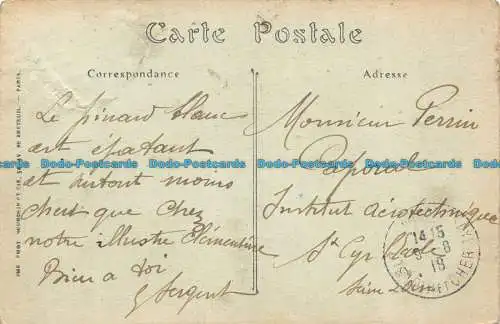 Carte Postale
Correspondance
Adresse
Le pinard blanc
est épatant
et surtout moins
cher que chez
notre illustre Clémentine
Bien a toi
Sergent
Monsieur Perrin
Caporal
Institut Aérotechnique
St Cyr l'Ecole
Seine & Oise
14 15
8
18
Dodo-Postcards Dodo-Postcards Dodo-Postcards Dodo-Postcards Dodo-Postcards